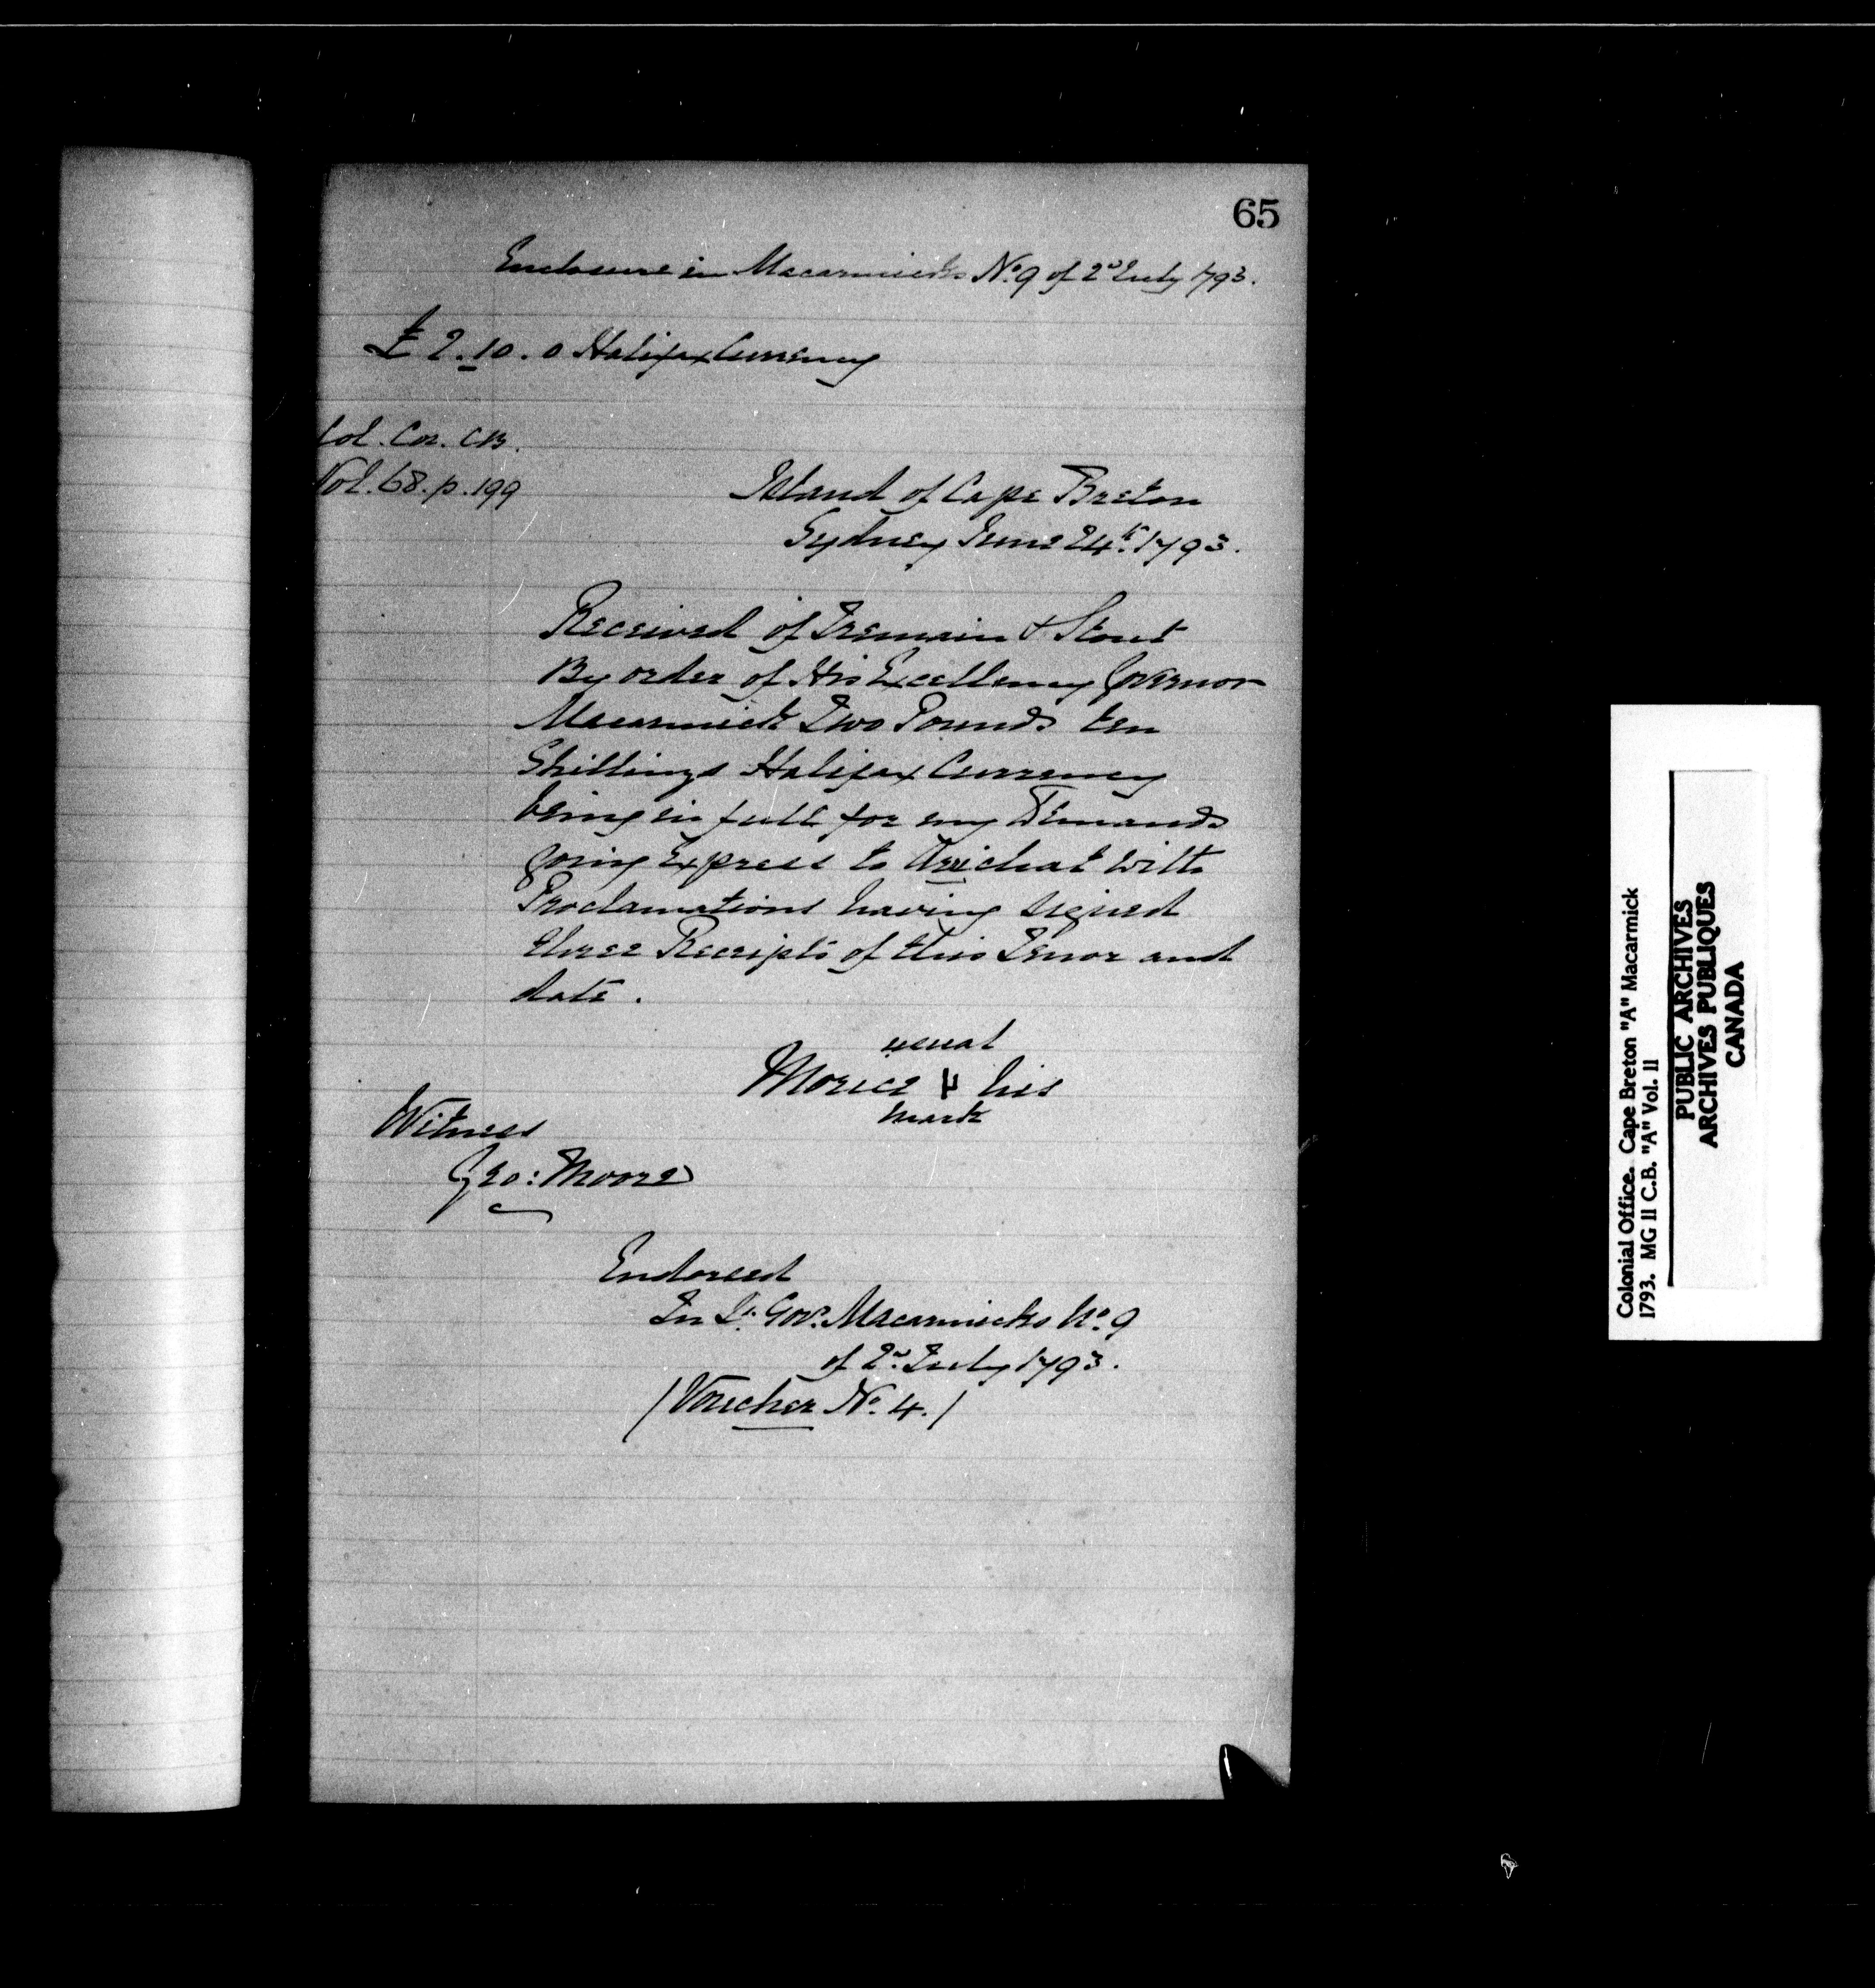 65
Enclosure in Macarmick's No. 9 of 2d July 1793.
£ 2.10.0 Halifax Currency
Col. Cor. C.B.
Vol. 68. p. 199
Island of Cape Breton
Sydney June 24th. 1793.
Received of Tremain & Stout
By order of His Excellency Governor
Macarmick Two Pounds ten
Shillings Halifax Currency
being in full for my Demands
going Express to Arichat with
Proclamations having signed
three Receipts of this Tenor and
date.
usual
Morice his
mark
Witness
Geo: Moore
Endorsed
In Lt. Govr. Macarmicks No. 9
of 2d. July 1793.
/Voucher No. 4./
Colonial Office. Cape Breton "A" Macarmick
1793. MG 11 C.B. "A" Vol. 11
PUBLIC ARCHIVES
ARCHIVES PUBLIQUES
CANADA